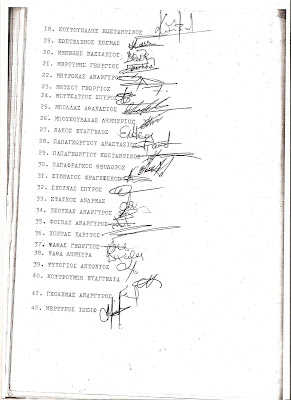 18. ΚΟΥΤΟΥΒΑΛΗΣ ΚΩΣΤΑΝΤΙΝΟΣ
19. ΚΩΣΤΕΛΕΝΟΣ ΚΟΣΜΑΣ
20. ΜΕΝΕΚΗΣ ΒΑΣΙΛΕΙΟΣ
21. ΜΕΡΤΥΡΗΣ ΓΕΩΡΓΙΟΣ
22. ΜΗΤΡΟΚΑΣ ΑΝΑΡΓΥΡΟΣ
23. ΜΗΤΣΟΥ ΓΕΩΡΓΙΟΣ
24. ΜΟΥΤΣΑΤΣΟΣ ΣΠΥΡΟΣ
25. ΜΠΟΛΛΑΣ ΑΘΑΝΑΣΙΟΣ
26. ΜΠΟΥΚΟΥΒΑΛΑΣ ΔΗΜΗΤΡΙΟΣ
27. ΝΑΚΟΣ ΕΥΑΓΓΕΛΟΣ
28. ΠΑΠΑΓΕΩΡΓΙΟΥ ΑΝΑΣΤΑΣΙΟΣ
29. ΠΑΠΑΓΕΩΡΓΙΟΥ ΚΩΣΤΑΝΤΙΝΟΣ
30. ΠΑΠΑΦΡΑΓΚΟΣ ΘΕΟΔΩΡΟΣ
31.
32. ΣΠΥΡΟΣ
33. ΣΤΑΙΚΟΣ ΑΝΔΡΕΑΣ
34. ΤΣΟΥΚΑΣ ΑΝΑΡΓΥΡΟΣ
35. ΑΝΑΡΓΥΡΟΣ
36. ΧΟΝΤΑΣ ΧΑΡΙΤΟΣ
37. ΨΑΘΑΣ ΓΕΩΡΓΙΟΣ
38. ΨΑΘΑ ΔΗΜΗΤΡΑ
39. ΨΥΧΟΓΙΟΣ ΑΝΤΩΝΙΟΣ
40. ΚΟΥΤΡΟΥΜΠΗ ΕΥΑΓΓΕΛΙΑ
41. ΑΝΑΡΓΥΡΟΣ
42. ΜΕΡΤΥΡΗΣ ΙΩΣΗΦ